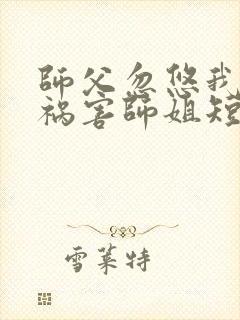 師父忽悠我
祸害師姐短
雪莱特